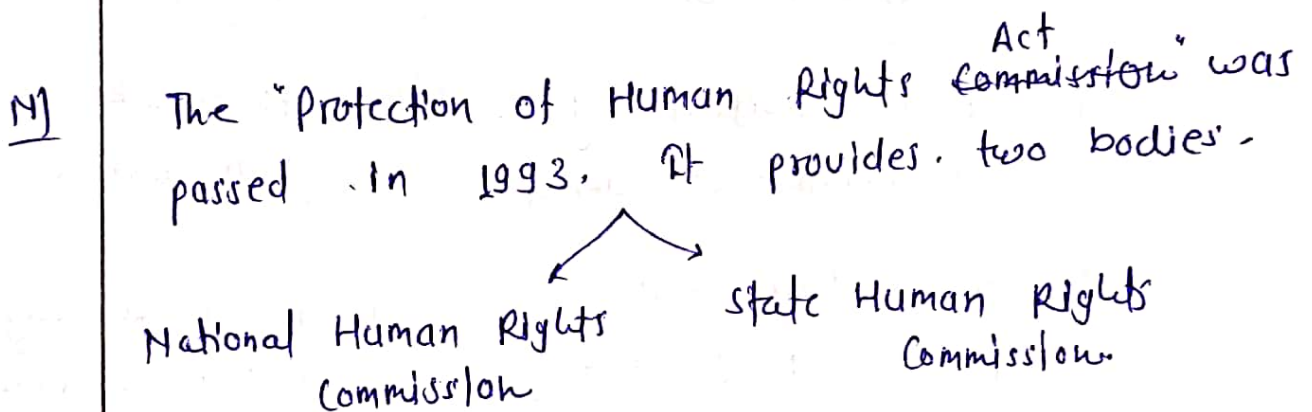 N]
The "Protection of Human Rights Act Commission" was
passed in 1993. It provides. two bodies.
National Human Rights
Commission
State Human Rights
Commission.